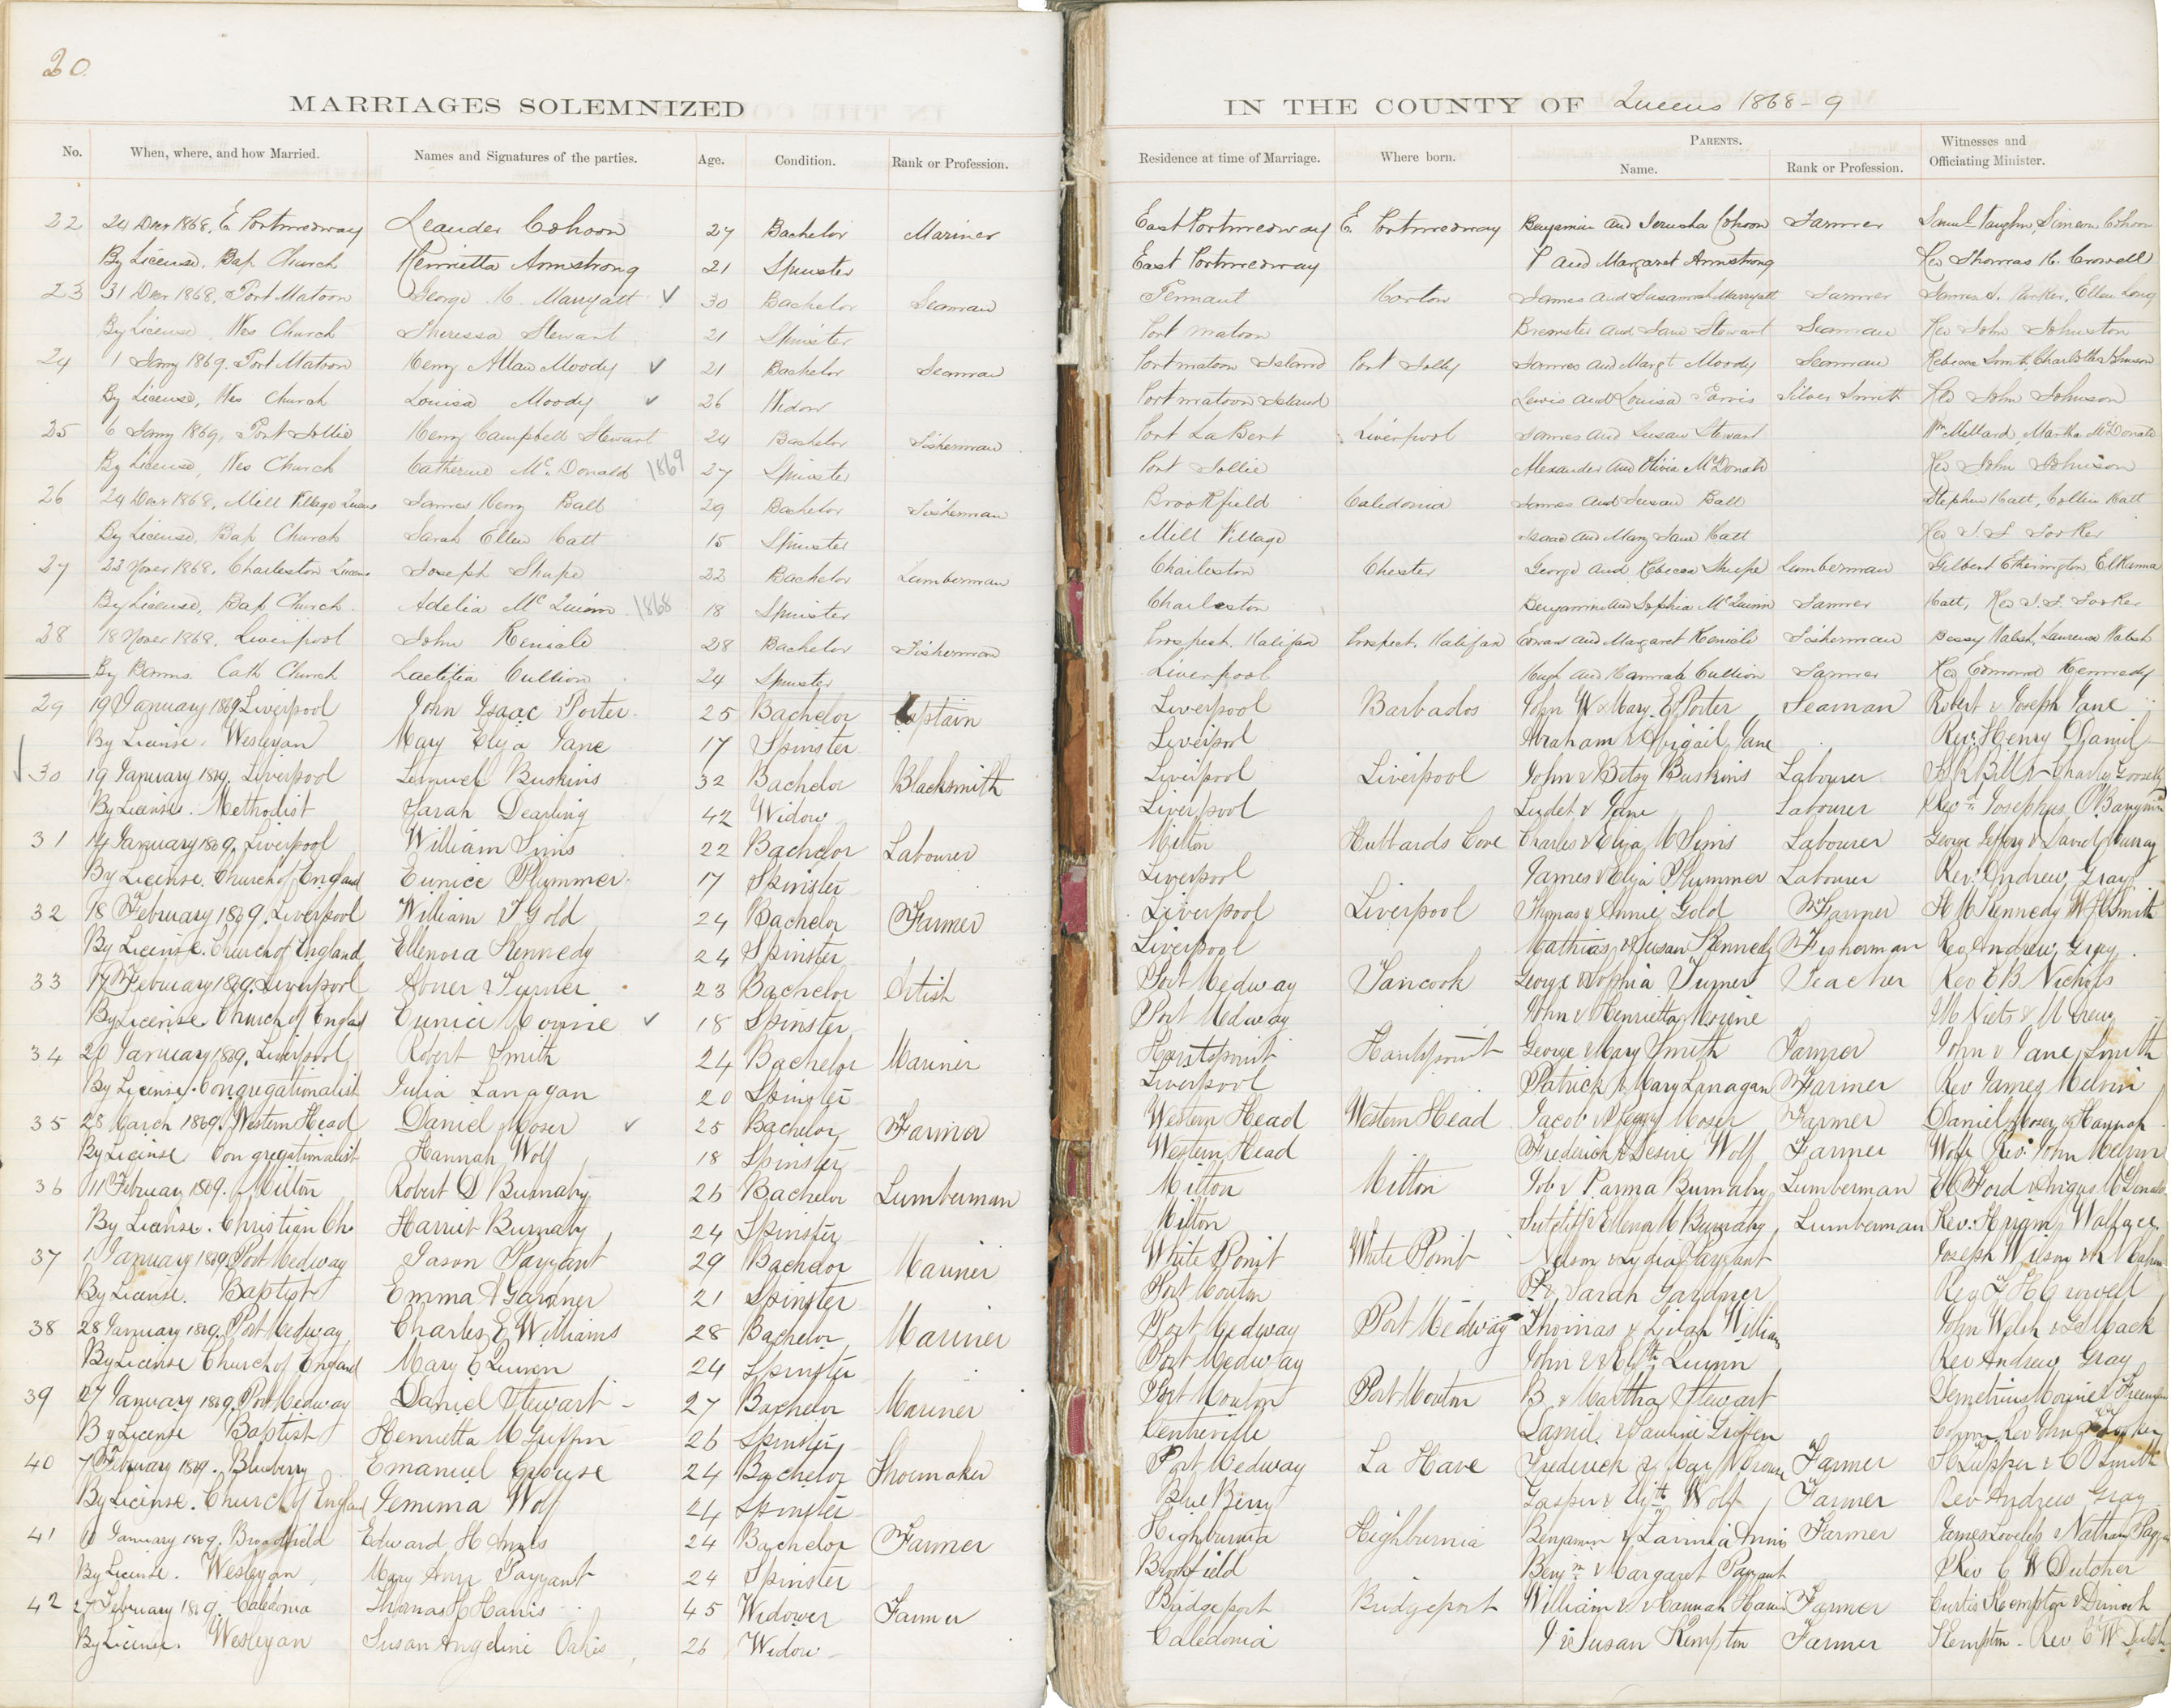 20
MARRIAGES SOLEMNIZED IN THE COUNTY OF Queens 1868-9
No. When, where, and how Married. Names and Signatures of the parties. Age. Condition. Rank or Profession. Residence at time of Marriage. Where born. PARENTS. Name. Rank or Profession. Witnesses and Officiating Minister.
22 24 Decr 1868, E Portmedway Leander Cohoon 27 Bachelor Mariner East Portmedway E. Portmedway Benjamin and Jerusha Cohoon Farmer Saml Vaughn, Simeon Cohoon
By License, Bap Church Henrietta Armstrong 21 Spinster East Portmedway P and Margaret Armstrong Rev Thomas H. Crowell
23 31 Decr 1868, Port Matoon George H. Marryatt 30 Bachelor Seaman Tennant Horton James and Susannah Marryatt Farmer James S. Parker, Ellen Long
By License, Wes Church Theressa Stewart 21 Spinster Port Matoon Brewster and Jane Stewart Seaman Rev John Johnston
24 1 Jany 1869, Port Matoon Henry Allan Moody 21 Bachelor Seaman Portmatoon Island Port Jolly James and Margt Moody Seaman Rebecca Smith, Charlotte Johnson
By License, Wes Church Louisa Moody 26 Widow Portmatoon Island Lewis and Louisa Jarvis Silver Smith Rev John Johnson
25 6 Jany 1869, Port Jollie Henry Campbell Stewart 24 Bachelor Fisherman Port La Bert Liverpool James and Susan Stewart Wm Millard, Martha McDonald
By License, Wes Church Catherine Mc. Donald 1869 27 Spinster Port Jollie Alexander and Olivia McDonald Rev John Johnson
26 24 Decr 1868, Mill Village Queens James Henry Ball 29 Bachelor Fisherman Brookfield Caledonia James and Susan Ball Stephen Catt, Collin Catt
By License, Bap Church Sarah Ellen Catt 15 Spinster Mill Village Isaac and Mary Jane Catt Rev
27 22 Novr 1868, Charleston Queens Joseph Shupe 22 Bachelor Lumberman Charleston Chester George and Rebecca Shupe Lumberman Gilbert Etherington, Elkanna
By License, Bap Church. Adelia McQuinn 1868 18 Spinster Charleston Benjamin and Sophia McQuinn Farmer Catt, Rev
28 18 Novr 1868. Liverpool John 28 Bachelor Fisherman Prospect. Halifax Prospect. Halifax Edward and Margaret Fisherman Bessy Walsh, Laurence Walsh
By Banns. Cath Church Laetitia Cullion 24 Spinster Liverpool Hugh and Hannah Cullion Farmer Rev Edmond Kennedy
29 19 January 1869 Liverpool John Isaac Porter 25 Bachelor Captain Liverpool Barbados John W & Mary. E Porter Seaman Robert & Joseph Jane
By License. Wesleyan Mary Eliza Jane 17 Spinster Liverpool Abraham & Abigail Jane Rev. Henry Daniel
30 19 January 1869. Liverpool Lemuel Buskins 32 Bachelor Blacksmith Liverpool Liverpool John & Betsy Buskins Labourer Bill & Charles
By License. Methodist Sarah Dearling 42 Widow Liverpool & Jane Labourer Rev Josephus
31 14 January 1869. Liverpool William Sims 22 Bachelor Labourer Milton Hubbards Cove Charles & Eliza M Sims Labourer George Jeffery & David Murray
By License. Church of England Eunice Plummer 17 Spinster Liverpool James & Eliza Plummer Labourer Rev. Andrew Gray
32 18 February 1869. Liverpool William T Gold 24 Bachelor Farmer Liverpool Liverpool Thomas & Annie Gold Farmer H M Kennedy W H Smith
By License. Church of England Ellenora Kennedy 24 Spinster Liverpool Mathias & Susan Kennedy Fisherman Rev Andrew Gray
33 17 February 1869. Liverpool Abner Turner 23 Bachelor Port Medway Tancook George & Sophia Turner Teacher Rev E B. Nichols
By License. Church of England Eunice Morine 18 Spinster Port Medway John & Henrietta Morine
34 20 January 1869. Liverpool Robert Smith 24 Bachelor Mariner Huntspoint Huntspoint George & Mary Smith Farmer John & Jane Smith
By License. Congregationalist Julia Lanagan 20 Spinster Liverpool Patrick & Mary Lanagan Farmer Rev James Melvin
35 28 March 1869. Western Head Daniel Moser 25 Bachelor Farmer Western Head Western Head Jacob & Peggy Moser Farmer Daniel Moser & Hannah
By License Congregationalist Hannah Wolf 18 Spinster Western Head Frederick & Desire Wolf Farmer Wolf Rev. John Melvin
36 11 February 1869. Milton Robert S Burnaby 25 Bachelor Lumberman Milton Milton Job & Parma Burnaby Lumberman Ford & Angus McDonald
By License. Christian Ch Harriet Burnaby 24 Spinster Milton Sutcliff & Ellenor M Burnaby Lumberman Rev. Hiram Wallace
37 1 January 1869. Port Medway Jason Payzant 29 Bachelor Mariner White Point White Point Nelson & Lydia Payzant Joseph Wilson &
By License. Baptist Emma A Gardner 21 Spinster Port Mouton & Sarah Gardner Rev T H Crowell
38 28 January 1869. Port Medway Charles E Williams 28 Bachelor Mariner Port Medway Port Medway Thomas & Williams John Welsh &
By License Church of England Mary E Quinn 24 Spinster Port Medway John & Elizth Quinn Rev Andrew Gray
39 27 January 1869. Port Medway Daniel Stewart 27 Bachelor Mariner Port Mouton Port Mouton B & Martha Stewart Demetrius Morine & Freeman
By License Baptist Henrietta M Griffin 26 Spinster Centreville Daniel & Pauline Griffin Rev John
40 7 February 1869. Blueberry Emanuel Crouse 24 Bachelor Shoemaker Port Medway La Have Frederick & Mary Crouse Farmer & C O Smith
By License. Church of England Jemima Wolf 24 Spinster Blue Berry Gasper & Elizth Wolf Farmer Rev Andrew Gray
41 January 1869. Brookfield Edward H Annis 24 Bachelor Farmer Highburnia Highburnia Benjamin & Lavinia Annis Farmer James Lovelep & Nathan Payzant
By License. Wesleyan Mary Ann Payzant 24 Spinster Brookfield Benjn & Margaret Payzant Rev C W Dutcher
42 27 February 1869. Caledonia Thomas C Harris 45 Widower Farmer Bridgeport Bridgeport William & Hannah Harris Farmer Curtis Kempton & Dinah
By License. Wesleyan Susan Angeline Oakes 26 Widow Caledonia J & Susan Kempton Farmer Kempton. Rev C W Dutcher